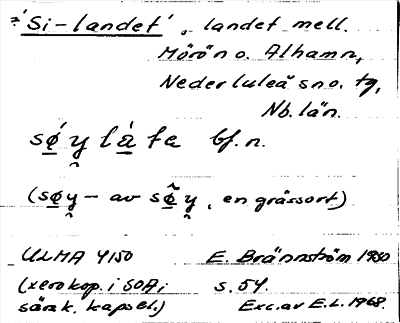 'Si-landet', landet mell.
Mörön o. Alhamn,
Nederluleå sn o. tg,
Nb. län.
sǿy lá ta bf. n.
(søy - av sø̃y, en gråssort)
ULMA 4150 E. Brännström 1930
(xerokop. i SOA; s. 54.
särsk. kapsel.) Exc. av E.L. 1968.